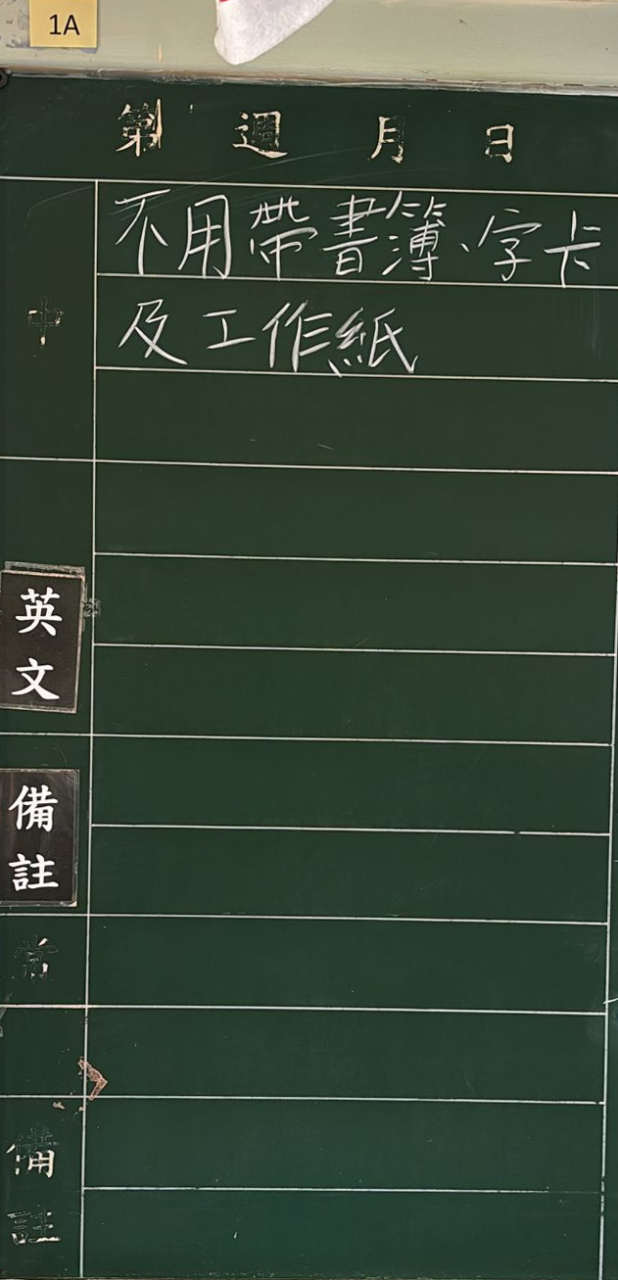 1A
第 週 月 日
不用帶書簿、字卡
中
及工作紙
英文
備註
常
備註